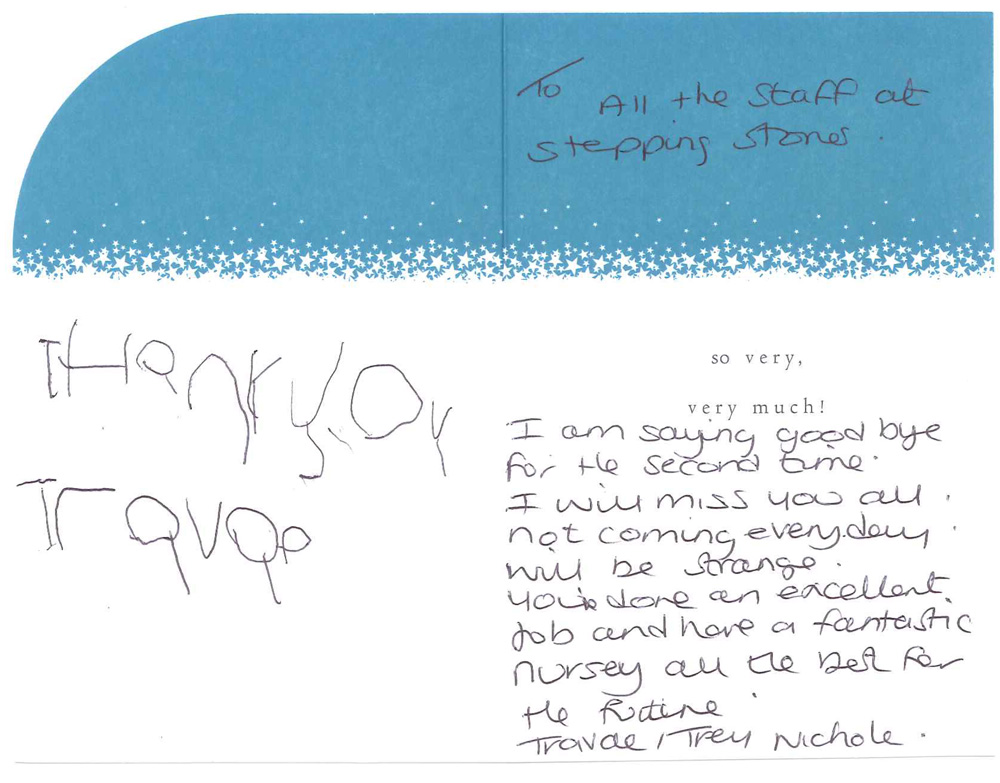 To All the staff at
stepping stones.
THANKYOU
Travae
so very,
very much!
I am saying good bye
for the second time.
I will miss you all.
not coming everyday.
will be strange.
you've done an excellent
job and have a fantastic
nursey all the best for
the future.
Travae / Trey Nichole.